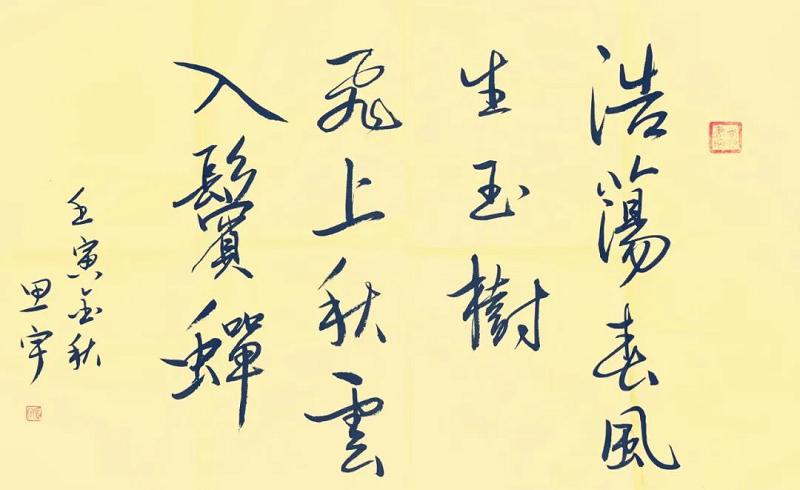 浩蕩春風
生玉樹
飛上秋雲
入鬢蟬
壬寅金秋
思宇